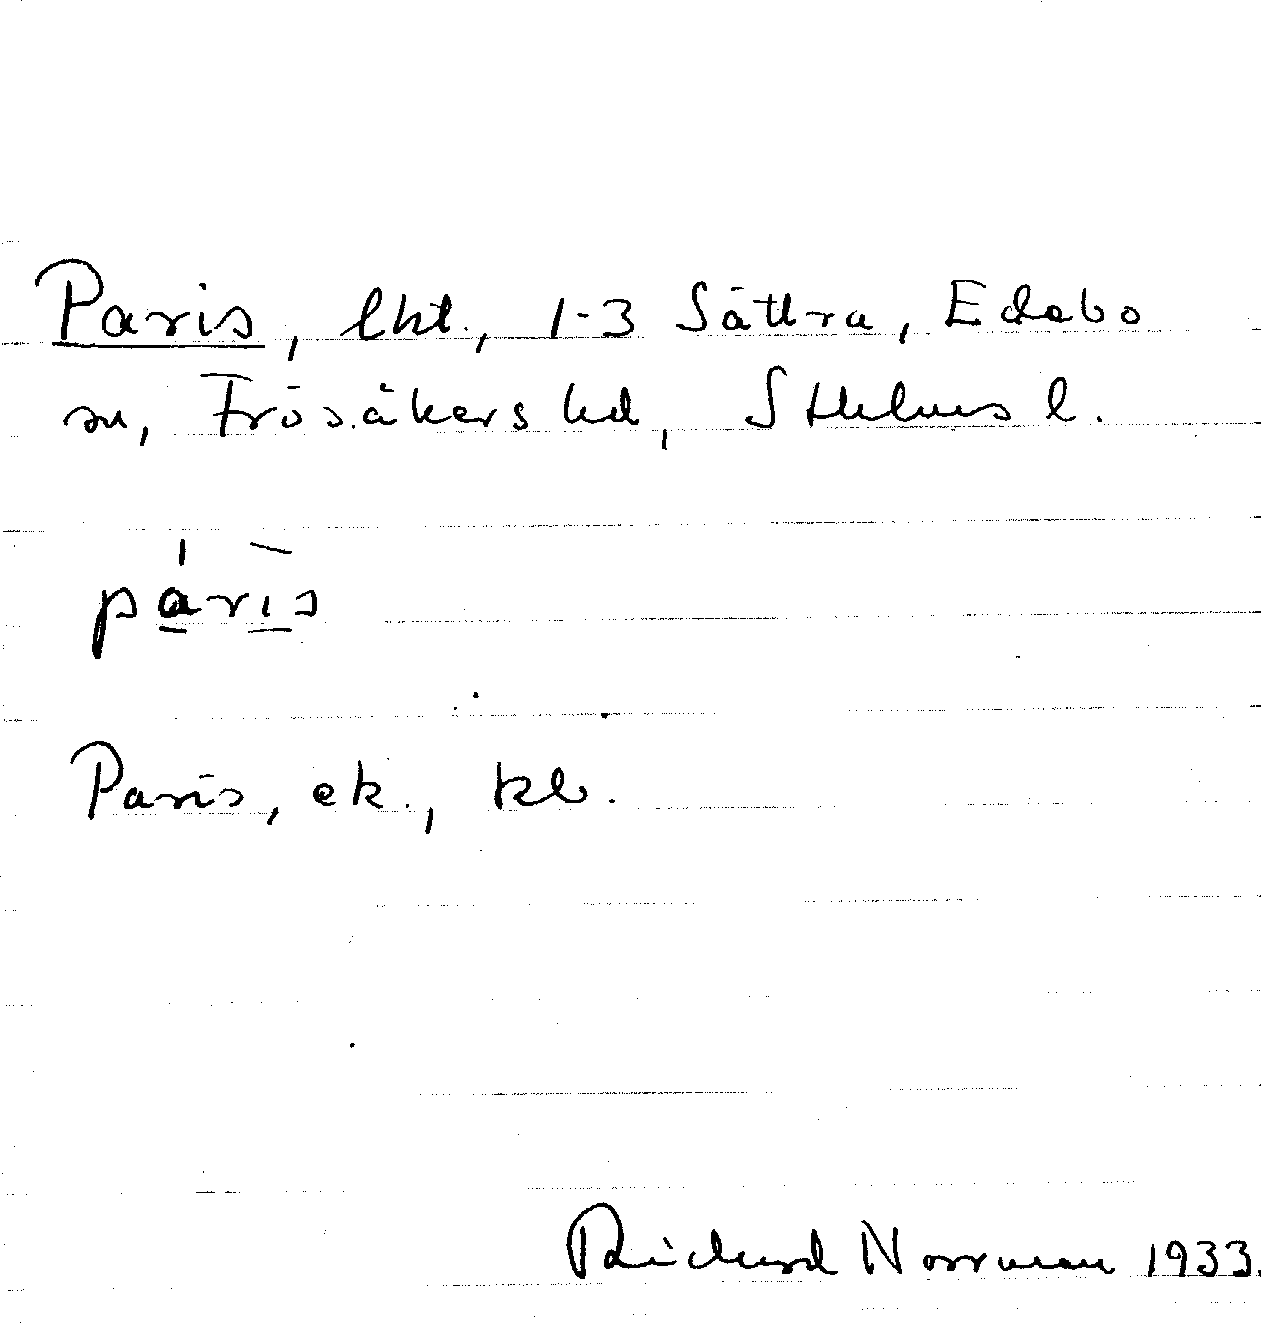 Paris, lht., 1-3 Sättra, Edebo
sn, Frösåkers hd, Sthlms l.
pàrìs
Paris, ek., kb.
Richard Norrman 1933.